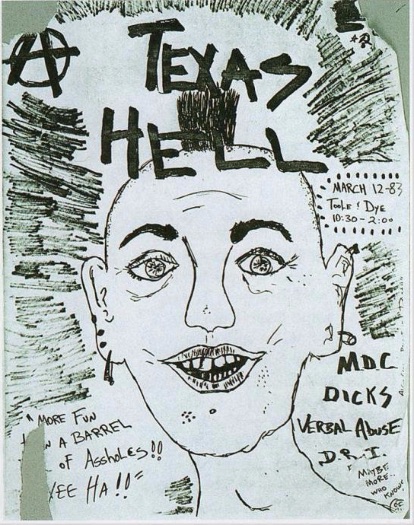 TEXAS
HELL
MARCH 12-83
TOOLE & DYE
10:30-2:00
M.D.C
DICKS
VERBAL ABUSE
D.R.I.
MAYBE
MORE..
WHO
KNOWS
"MORE FUN
A BARREL
OF ASSHOLES!!
YEE HA!!"